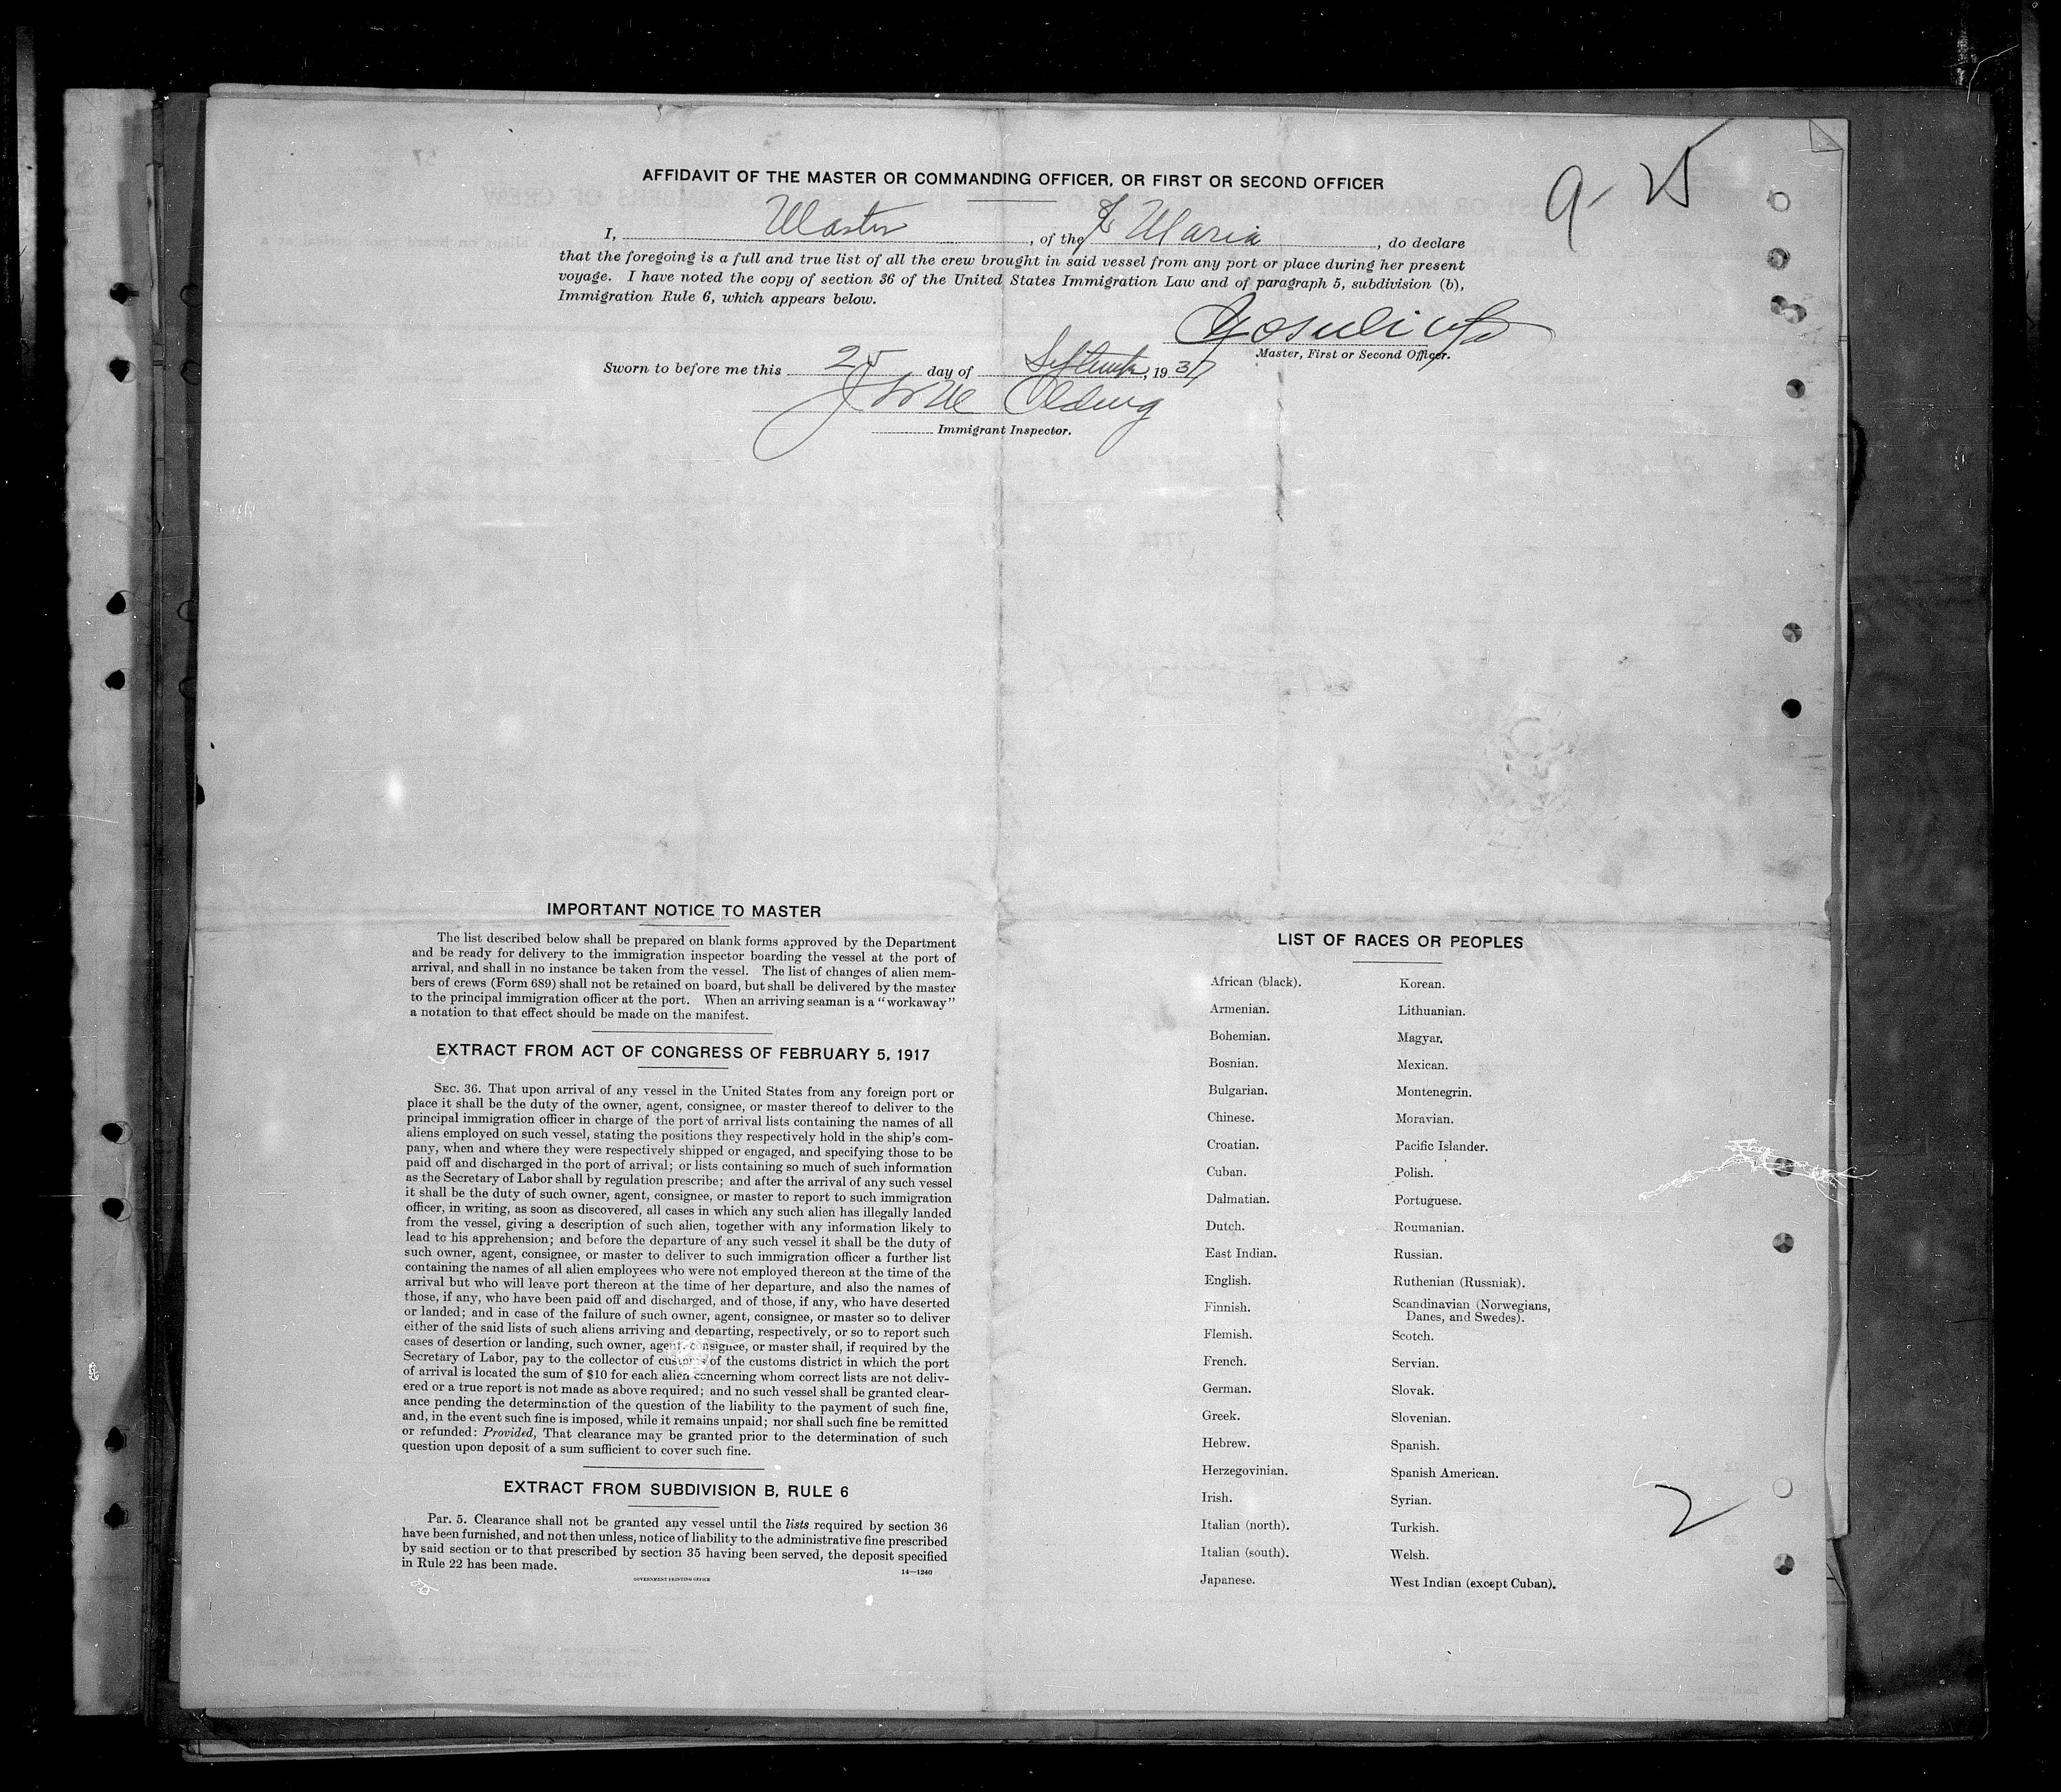 9-25
AFFIDAVIT OF THE MASTER OR COMMANDING OFFICER, OR FIRST OR SECOND OFFICER
I, Master, of the Maria, do declare
that the foregoing is a full and true list of all the crew brought in said vessel from any port or place during her present
voyage. I have noted the copy of section 36 of the United States Immigration Law and of paragraph 5, subdivision (b),
Immigration Rule 6, which appears below.
Master, First or Second Officer.
Sworn to before me this 25 day of September, 1937
Immigrant Inspector.
IMPORTANT NOTICE TO MASTER
The list described below shall be prepared on blank forms approved by the Department
and be ready for delivery to the immigration inspector boarding the vessel at the port of
arrival, and shall in no instance be taken from the vessel. The list of changes of alien mem-
bers of crews (Form 689) shall not be retained on board, but shall be delivered by the master
to the principal immigration officer at the port. When an arriving seaman is a "workaway"
a notation to that effect should be made on the manifest.
EXTRACT FROM ACT OF CONGRESS OF FEBRUARY 5, 1917
SEC. 36. That upon arrival of any vessel in the United States from any foreign port or
place it shall be the duty of the owner, agent, consignee, or master thereof to deliver to the
principal immigration officer in charge of the port of arrival lists containing the names of all
aliens employed on such vessel, stating the positions they respectively hold in the ship's com-
pany, when and where they were respectively shipped or engaged, and specifying those to be
paid off and discharged in the port of arrival; or lists containing so much of such information
as the Secretary of Labor shall by regulation prescribe; and after the arrival of any such vessel
it shall be the duty of such owner, agent, consignee, or master to report to such immigration
officer, in writing, as soon as discovered, all cases in which any such alien has illegally landed
from the vessel, giving a description of such alien, together with any information likely to
lead to his apprehension; and before the departure of any such vessel it shall be the duty of
such owner, agent, consignee, or master to deliver to such immigration officer a further list
containing the names of all alien employees who were not employed thereon at the time of the
arrival but who will leave port thereon at the time of her departure, and also the names of
those, if any, who have been paid off and discharged, and of those, if any, who have deserted
or landed; and in case of the failure of such owner, agent, consignee, or master so to deliver
either of the said lists of such aliens arriving and departing, respectively, or so to report such
cases of desertion or landing, such owner, agent, consignee, or master shall, if required by the
Secretary of Labor, pay to the collector of customs of the customs district in which the port
of arrival is located the sum of $10 for each alien concerning whom correct lists are not deliv-
ered or a true report is not made as above required; and no such vessel shall be granted clear-
ance pending the determination of the question of the liability to the payment of such fine,
and, in the event such fine is imposed, while it remains unpaid; nor shall such fine be remitted
or refunded: Provided, That clearance may be granted prior to the determination of such
question upon deposit of a sum sufficient to cover such fine.
EXTRACT FROM SUBDIVISION B, RULE 6
PAR. 5. Clearance shall not be granted any vessel until the lists required by section 36
have been furnished, and not then unless, notice of liability to the administrative fine prescribed
by said section or to that prescribed by section 35 having been served, the deposit specified
in Rule 22 has been made.
14—1240
GOVERNMENT PRINTING OFFICE
LIST OF RACES OR PEOPLES
African (black).
Armenian.
Bohemian.
Bosnian.
Bulgarian.
Chinese.
Croatian.
Cuban.
Dalmatian.
Dutch.
East Indian.
English.
Finnish.
Flemish.
French.
German.
Greek.
Hebrew.
Herzegovinian.
Irish.
Italian (north).
Italian (south).
Japanese.
Korean.
Lithuanian.
Magyar.
Mexican.
Montenegrin.
Moravian.
Pacific Islander.
Polish.
Portuguese.
Roumanian.
Russian.
Ruthenian (Russniak).
Scandinavian (Norwegians,
Danes, and Swedes).
Scotch.
Servian.
Slovak.
Slovenian.
Spanish.
Spanish American.
Syrian.
Turkish.
Welsh.
West Indian (except Cuban).
2